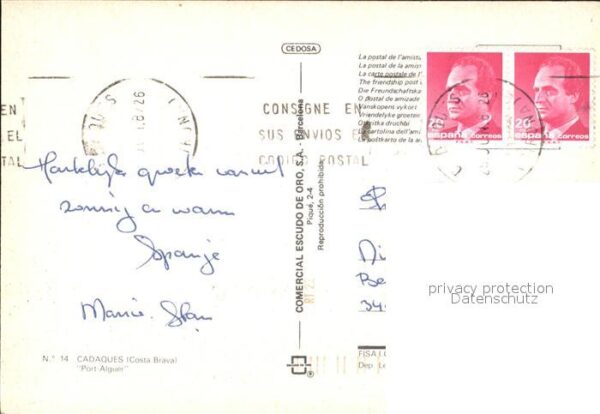 CEDOSA
La postal de l'amista
La postal de la amis
La carte postale de l'
The friendship post
Die Freundschaftska
O postal de amizade
Vanskapens vykort
Vriendelijke groeten
druchbi
cartolina dell'am
La postkarto de la am
España correos
20
España correos
CONSIGNE EN
SUS ENVIOS EL
CODIGO POSTAL
EN
EL
TAL
Hartelijke groeten vanuit
zonnig en warm
Spanje
COMERCIAL ESCUDO DE ORO, S.A. - Barcelona
Piqué, 2-4
Reproducción prohibida
privacy protection
Datenschutz
N.° 14 CADAQUES (Costa Brava)
"Port Alguer"
FISA I.
Dep. Le